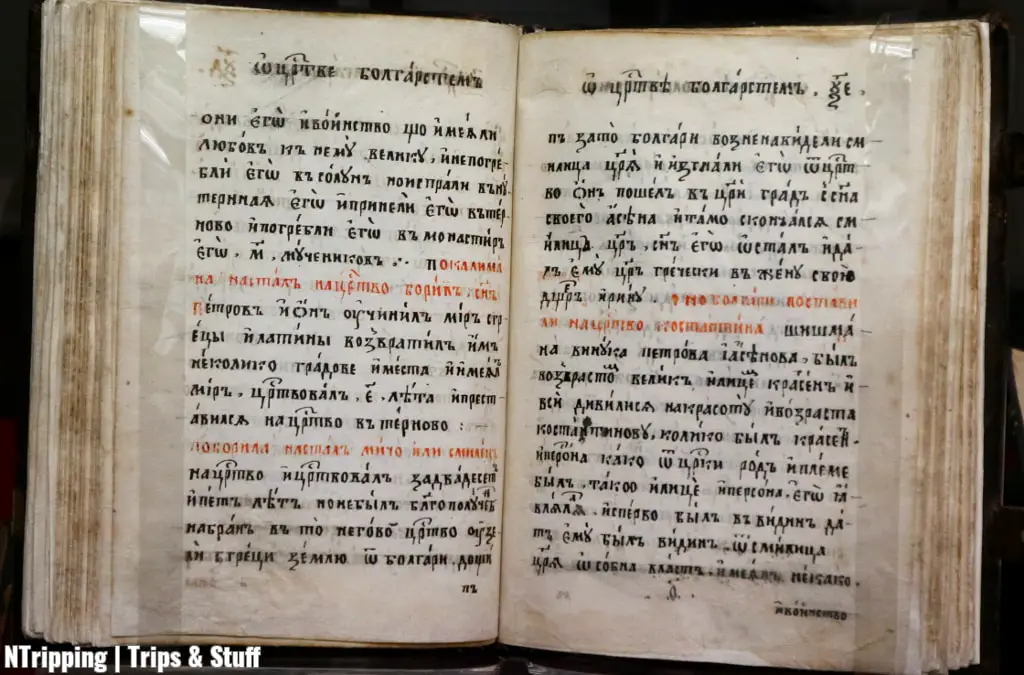 ѿ црⷭ҇тве болгарстемъ
они єгѡ и воинство що имеѧли
любовъ къ нему велику, и непогре
бли єгѡ въ солунъ но испрали вънꙋ
тернаѧ єгѡ и принели єгѡ въ тер
ново и погребли єгѡ въ монастир
єгѡ, м҃, мучениковъ ⁘ по калима
на насталъ на црⷭ҇тво борилъ, сн҃ъ
петровъ и ѻнъ ѹчинилъ миръ съ гр
ецы и латины возвратилъ имъ
неколико градове и места и имеѧлъ
миръ, црⷭ҇твовалъ, є҃, лѣта и прест
ависѧ на црⷭ҇тво въ терново :
по борила насталъ мичо или смилецъ
на црⷭ҇тво и црⷭ҇твовалъ за двадесет
и петъ лѣтъ но не былъ бл҃гополученъ
на бранъ въ то негово црⷭ҇тво ѹзе
ли бгреци землю ѿ болгари, дошꙋ
пъ
ѿ црⷭ҇твѣ болгарстемъ, ѯ҃є
пъ за то болгари возненавидели см
илица црѧ̀ и изгнали єгѡ ѿ црⷭ҇т
во ѻнъ пошелъ въ цр҃и градъ с сн҃а
своего асѣна и тамо скончалсѧ см
илицъ цр҃ъ, сн҃ъ єгѡ ѡсталъ и да
лъ ему цр҃ъ гречески въ жену свою
дщеръ ирину, но болгари постави
ли на црⷭ҇тво костантина шишма
на внука петрова і асѣнова, былъ
возрастѡ великъ и лице красенъ и
вси дивилисѧ на красоту и возраста
костантинову, колико былъ красенъ
и персона како ѿ цр҃ки родъ и племе
былъ, такою и лице и персона, єгѡ іа
влѧлѧ, исперво былъ въ видин да
тъ ему былъ видинъ, ѿ смилица
црѧ ѡсобна властъ, имеѧлъ некако
и воинство
NTripping | Trips & Stuff